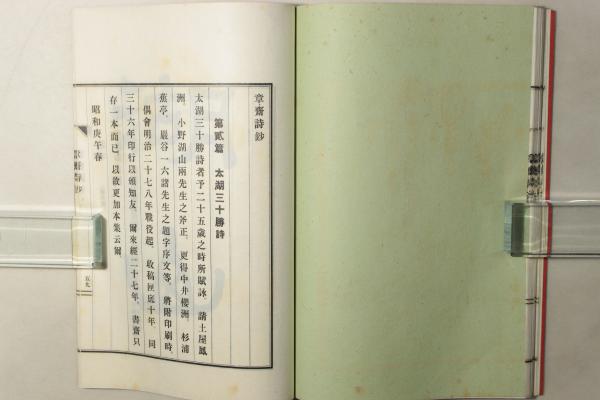 章齋詩鈔
第貳篇 太湖三十勝詩
太湖三十勝詩者予二十五歲之時所賦詠、請土屋鳳
洲、小野湖山兩先生之斧正、更得中井櫻洲、杉浦
蕉亭、巖谷一六諸先生之題字序文等、將附印刷時、
偶會明治二十七八年戰役起、收稿匣底十年、同
三十六年印行以頒知友、爾來經二十七年、書齋只
存一本而已、以故更加本集云爾
昭和庚午春
五九